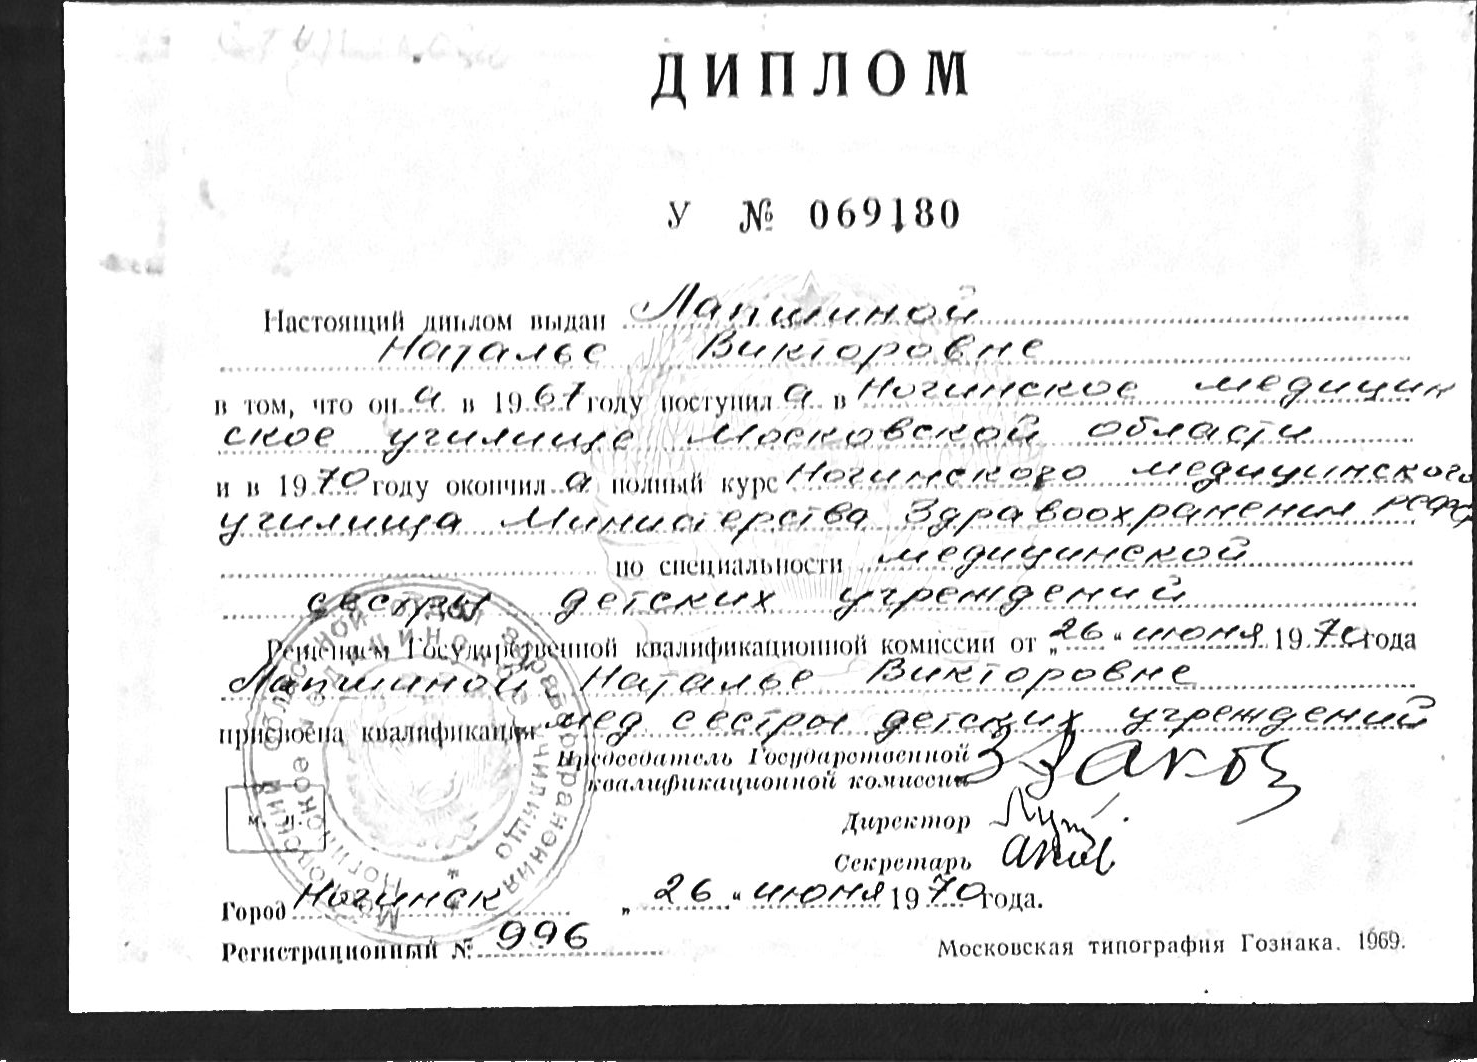 ДИПЛОМ
У № 069180
Настоящий диплом выдан Лапшиной
Наталье Викторовне
в том, что он а в 1967 году поступил а в Ногинское медицин
ское училище Московской области
и в 1970 году окончил а полный курс Ногинского медицинского
училища Министерства Здравоохранения РСФСР
по специальности медицинской
сестры детских учреждений
Решением Государственной квалификационной комиссии от „26“ июня 1970 года
Лапшиной Наталье Викторовне
присвоена квалификация мед сестры детских учреждений
Председатель Государственной
квалификационной комиссии
Директор
Секретарь
М. П.
Город Ногинск „26“ июня 1970 года.
Регистрационный № 996
Московская типография Гознака. 1969.